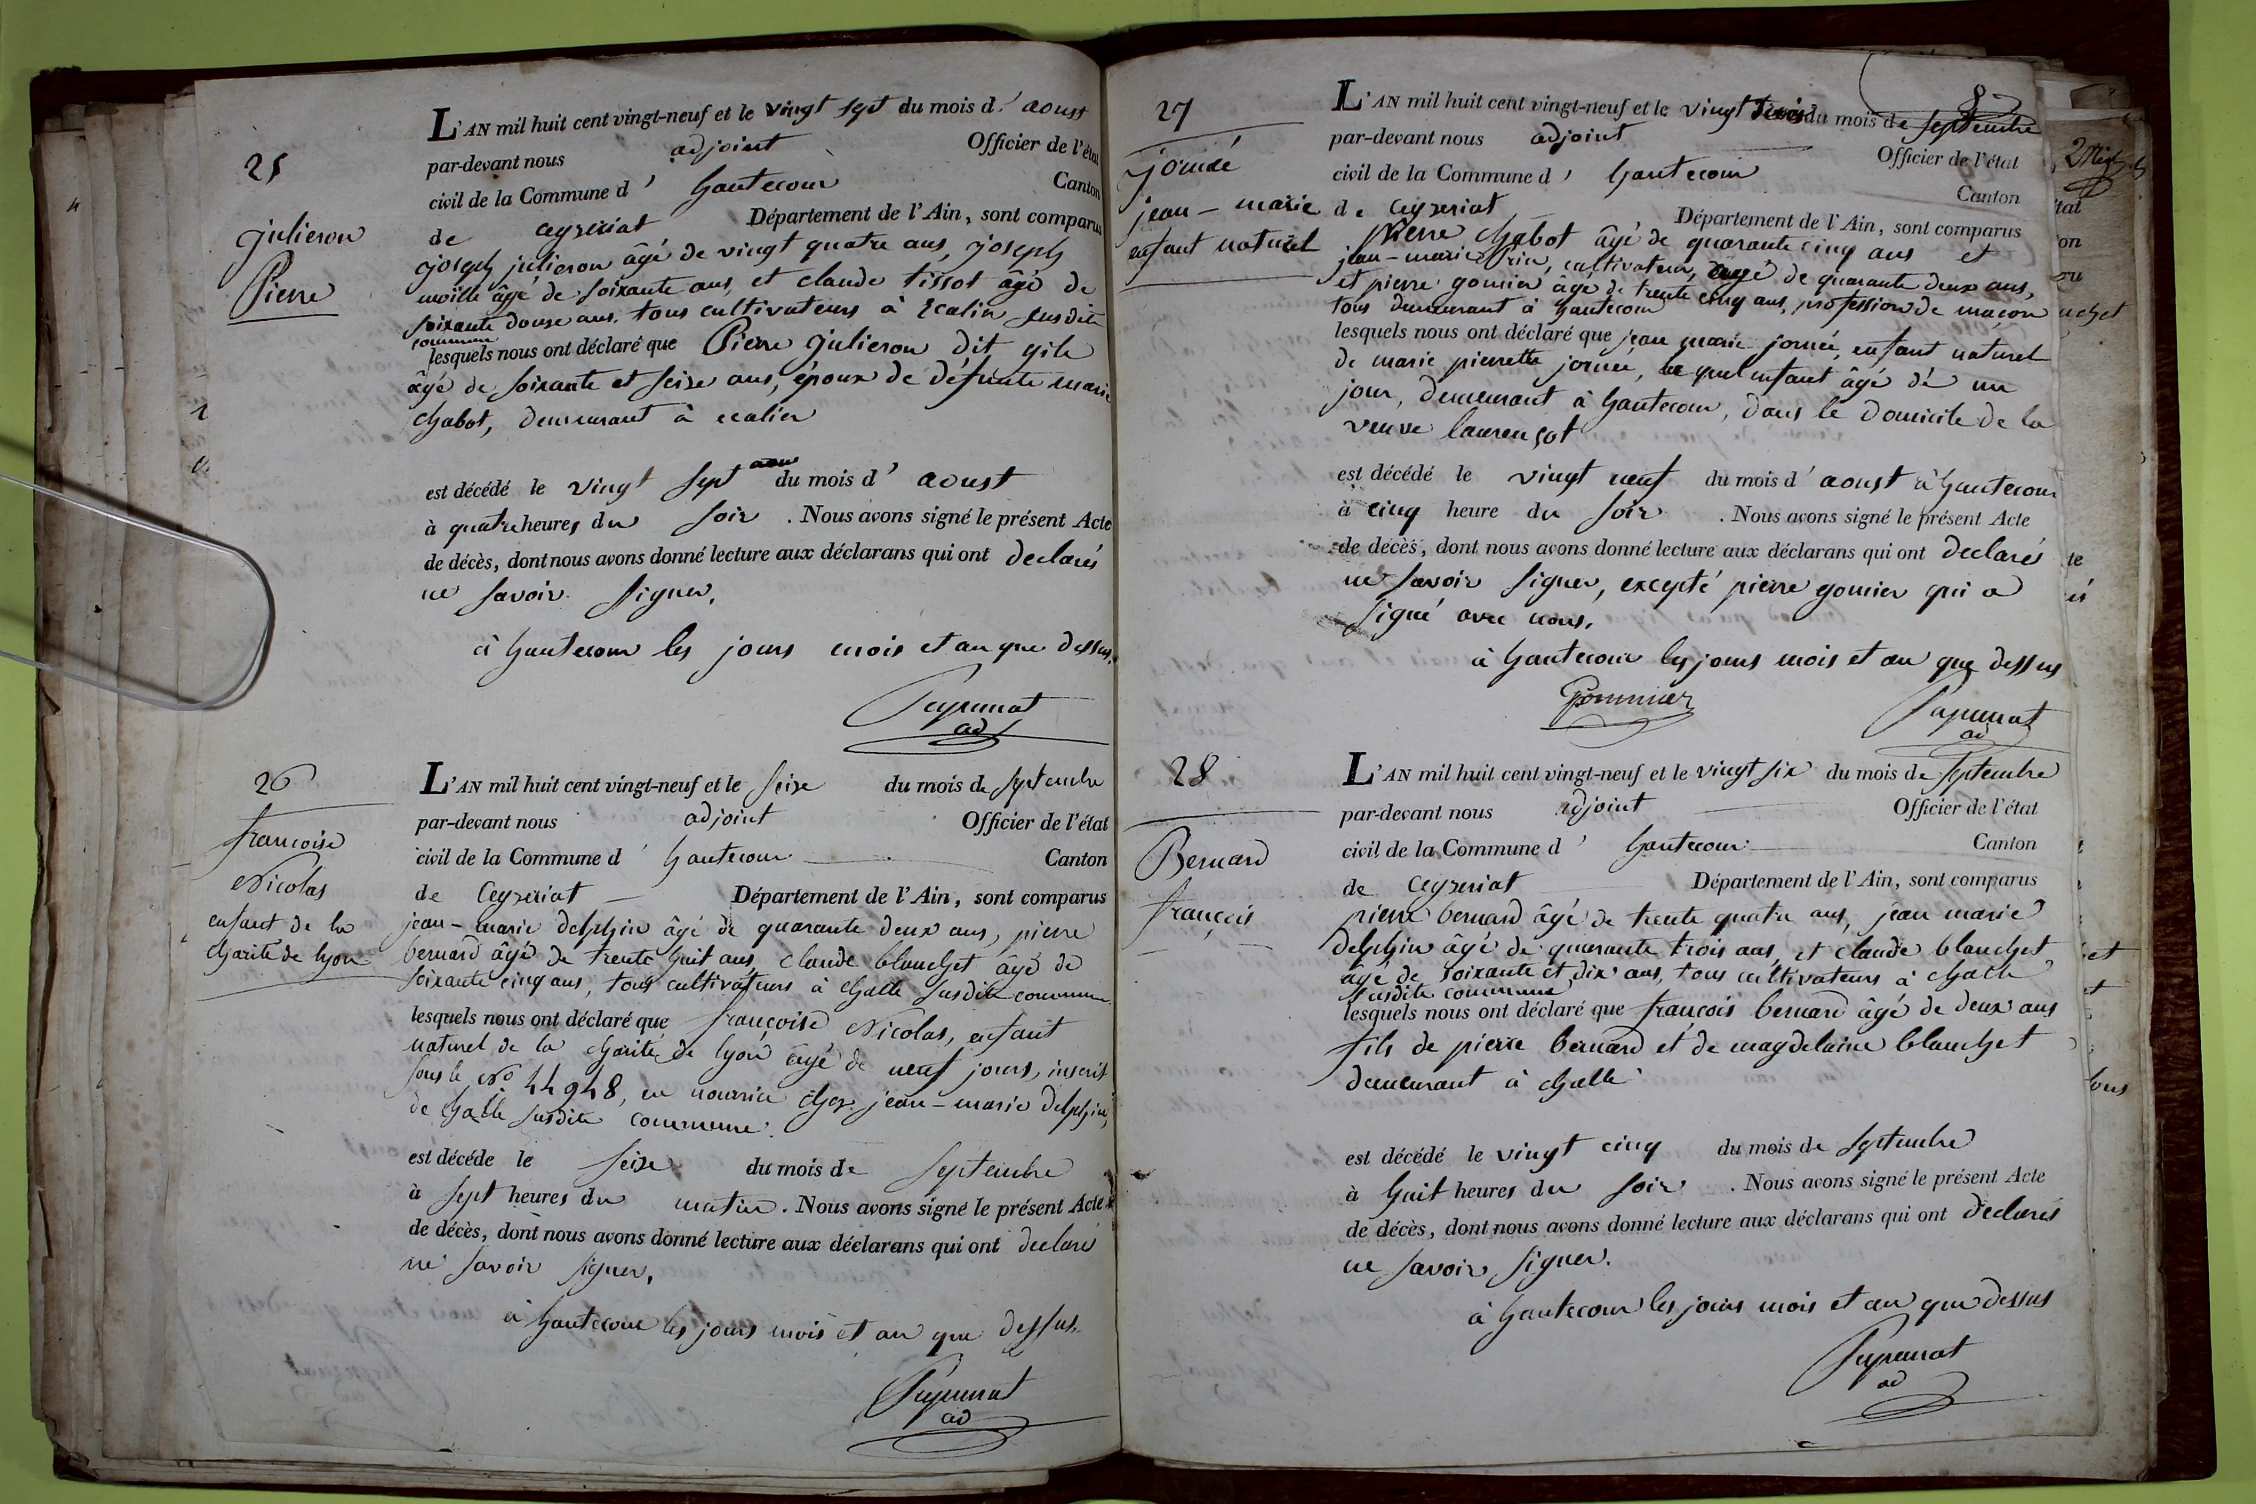 25
julieron
Pierre
L'AN mil huit cent vingt-neuf et le vingt sept du mois d' aoust
par-devant nous adjoint Officier de l'état
civil de la Commune d' hautecour Canton
de ceyzeriat Département de l'Ain, sont comparus
joseph julieron âgé de vingt quatre ans, joseph
moille âgé de soixante ans, et claude tissot âgé de
soixante douse ans, tous cultivateurs à Ecalin susdite
commune
lesquels nous ont déclaré que Pierre julieron dit gile
âgé de soixante et seize ans, époux de défunte marie
chabot, demeurant à ecalin
est décédé le vingt sept du mois d' aoust
à quatre heures du soir . Nous avons signé le présent Acte
de décès, dont nous avons donné lecture aux déclarans qui ont declarés
ne savoir signer.
à hautecour les jours mois et an que dessus.
ad
26
francoise
Nicolas
enfant de la
charité de lyon
L'AN mil huit cent vingt-neuf et le seize du mois de septembre
par-devant nous adjoint Officier de l'état
civil de la Commune d' hautecour Canton
de Ceyzeriat Département de l'Ain, sont comparus
jean-marie delphin âgé de quarante deux ans, pierre
bernard âgé de trente huit ans, claude blanchet âgé de
soixante cinq ans, tous cultivateurs à challe susdite commune
lesquels nous ont déclaré que françoise Nicolas, enfant
naturel de la charité de lyon âgé de neuf jours, inscrit
sous le No 44948, en nourice chez jean-marie delphin,
de challe susdite commune.
est décédé le seize du mois de septembre
à sept heures du matin . Nous avons signé le présent Acte
de décès, dont nous avons donné lecture aux déclarans qui ont declaré
ne savoir signer.
à hautecour les jours mois et an que dessus.
ad
27
jean-marie
enfant naturel
L'AN mil huit cent vingt-neuf et le vingt trois du mois de septembre
par-devant nous adjoint Officier de l'état
civil de la Commune d' hautecour Canton
de ceyzeriat Département de l'Ain, sont comparus
pierre chabot âgé de quarante cinq ans et
jean-marie cultivateur, âgé de quarante deux ans,
et pierre gomier âgé de trente cinq ans, profession de maçon
tous demeurant à hautecour
lesquels nous ont déclaré que jean marie enfant naturel
de marie pierrette le quel enfant âgé de un
jour, demeurant à hautecour, dans le domicile de la
veuve laurençot
est décédé le vingt neuf du mois d' aoust à hautecour
à cinq heure du soir . Nous avons signé le présent Acte
de décès, dont nous avons donné lecture aux déclarans qui ont declarés
ne savoir signer, excepté pierre gomier qui a
signé avec nous.
à hautecour les jours mois et an que dessus
ad
28
Bernard
françois
L'AN mil huit cent vingt-neuf et le vingt six du mois de septembre
par-devant nous adjoint Officier de l'état
civil de la Commune d' hautecour Canton
de ceyzeriat Département de l'Ain, sont comparus
pierre bernard âgé de trente quatre ans, jean marie
delphin âgé de quarante trois ans, et claude blanchet
âgé de soixante et dix ans, tous cultivateurs à challe
susdite commune
lesquels nous ont déclaré que françois bernard âgé de deux ans
fils de pierre bernard et de magdelaine blanchet
demeurant à challe
est décédé le vingt cinq du mois de septembre
à huit heures du soir . Nous avons signé le présent Acte
de décès, dont nous avons donné lecture aux déclarans qui ont declarés
ne savoir signer.
à hautecour les jours mois et an que dessus
ad